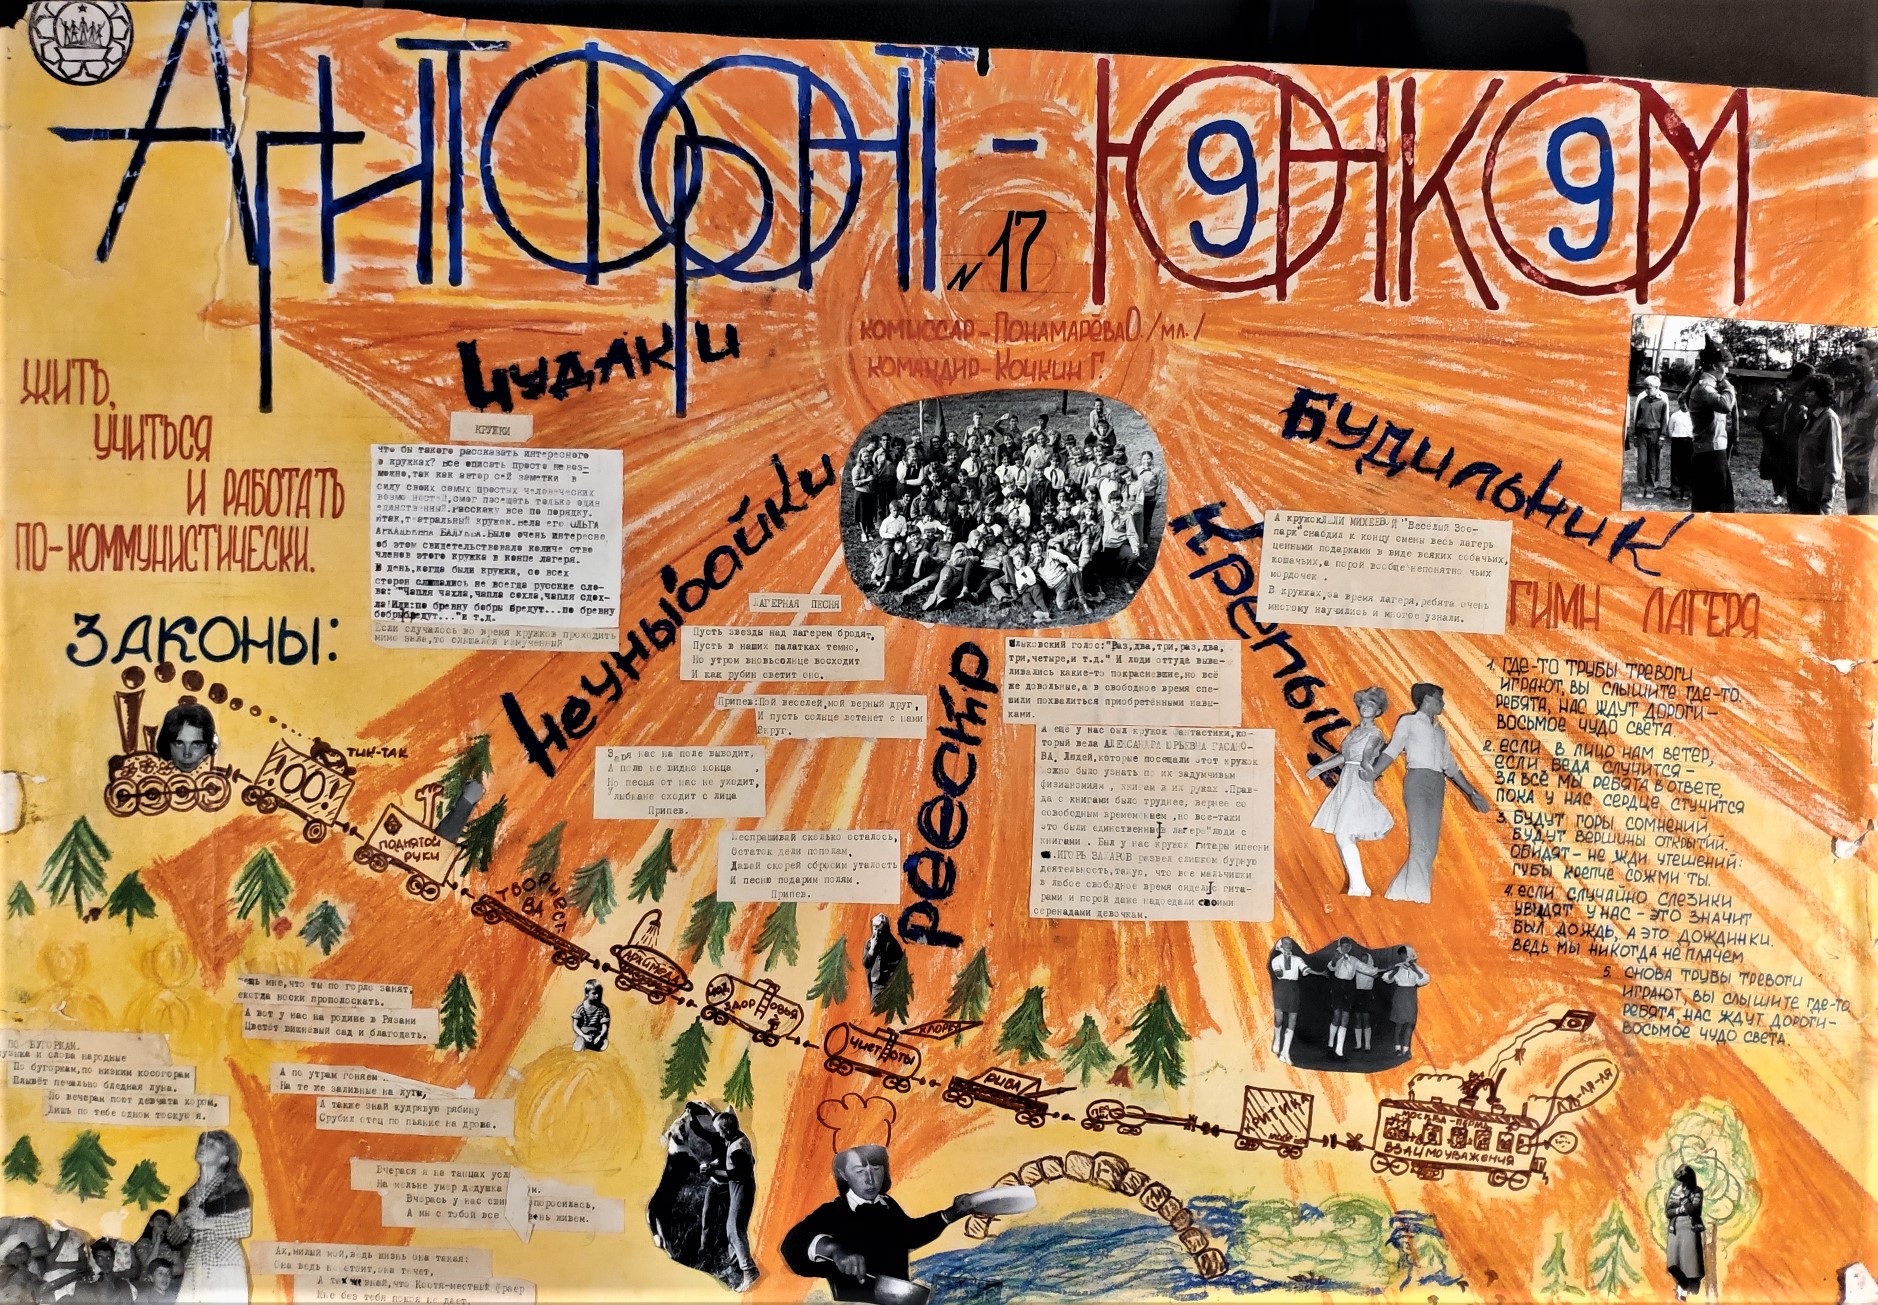 АНТФРОНТ - ЮНКОМ
9 9
№ 17
КОМИССАР - ПОНАМАРЁВА О. /МЛ./
КОМАНДИР - КОЧКИН Г.
ЖИТЬ,
УЧИТЬСЯ
И РАБОТАТЬ
ПО-КОММУНИСТИЧЕСКИ.
ЗАКОНЫ:
ЧУДАКИ
НЕУНЫВАЙКИ
РЕЕСТР
КРЕПЫШ
БУДИЛЬНИК
КРУЖКИ
Что бы такого рассказать интересного
о кружках? Все описать просто невоз-
можно, так как автор сей заметки в
силу своих самых простых человеческих
возможностей, смог посещать только один
единственный. Расскажу все по порядку.
Итак, театральный кружок. Вела его ОЛЬГА
Было очень интересно,
об этом свидетельствовало количе ство
членов этого кружка в конце лагеря.
В день, когда были кружки, со всех
сторон слышались не всегда русские сло-
ва: "Цапля чахла, цапля сохла, цапля сдох-
ла! Или: по бревну бобры бредут... по бревну
бобры бредут..." и т.д.
Если случалось во время кружков проходить
мимо зала, то слышался измученный
лыковский голос: "Раз, два, три, раз, два,
три, четыре, и т.д." И люди оттуда выва-
ливались какие-то покрасневшие, но всё
же довольные, а в свободное время спе-
шили похвалиться приобретёнными навы-
ками.
А еще у нас был кружок фантастики, ко-
торый вела АЛЕКСАНДРА ЮРЬЕВНА ГАСАНО-
ВА. Людей, которые посещали этот кружок
можно было узнать по их задумчивым
физиономиям, книгам в их руках. Прав-
да с книгами было труднее, вернее со
свободным временем, но все-таки
это были единственные в лагере "люди с
книгами". Был у нас кружок гитары и песни
ИГОРЬ ЗАХАРОВ развел слишком бурную
деятельность, такую, что все мальчишки
в любое свободное время сидели с гита-
рами и порой даже надоедали своими
серенадами девочкам.
А кружок ЛЕЛИ МИХЕЕВОЙ "Весёлый Зоо-
парк" снабдил к концу смены весь лагерь
ценными подарками в виде всяких собачьих,
кошачьих, а порой вообще непонятно чьих
мордочек.
В кружках, за время лагеря, ребята очень
многому научились и многое узнали.
ЛАГЕРНАЯ ПЕСНЯ
Пусть звезды над лагерем бродят,
Пусть в наших палатках темно,
Но утром вновь солнце восходит
И как рубин светит оно.
Припев: Пой веселей, мой верный друг,
И пусть солнце встанет с нами
Вкруг.
Заря нас на поле выводит,
А полю не видно конца
Но песня от нас не уходит,
Улыбка не сходит с лица
Припев.
Неспрашивай сколько осталось,
Остаток дели пополам,
Давай скорей сбросим усталость
И песню подарим полям.
Припев.
ГИМН ЛАГЕРЯ
1. ГДЕ-ТО ТРУБЫ ТРЕВОГИ
ИГРАЮТ, ВЫ СЛЫШИТЕ ГДЕ-ТО.
РЕБЯТА, НАС ЖДУТ ДОРОГИ -
ВОСЬМОЕ ЧУДО СВЕТА.
2. ЕСЛИ В ЛИЦО НАМ ВЕТЕР,
ЕСЛИ БЕДА СЛУЧИТСЯ -
ЗА ВСЁ МЫ РЕБЯТА В ОТВЕТЕ,
ПОКА У НАС СЕРДЦЕ СТУЧИТСЯ
3. БУДУТ ГОРЫ СОМНЕНИЙ,
БУДУТ ВЕРШИНЫ ОТКРЫТИЙ.
ОБИДЯТ - НЕ ЖДИ УТЕШЕНИЙ:
ГУБЫ КРЕПЧЕ СОЖМИ ТЫ.
4. ЕСЛИ СЛУЧАЙНО СЛЕЗИКИ
УВИДЯТ У НАС - ЭТО ЗНАЧИТ
БЫЛ ДОЖДЬ, А ЭТО ДОЖДИНКИ.
ВЕДЬ МЫ НИКОГДА НЕ ПЛАЧЕМ
5. СНОВА ТРУБЫ ТРЕВОГИ
ИГРАЮТ, ВЫ СЛЫШИТЕ ГДЕ-ТО
РЕБЯТА, НАС ЖДУТ ДОРОГИ -
ВОСЬМОЕ ЧУДО СВЕТА.
ТИК-ТАК
!00!
ПОДНЯТОЙ
РУКИ
ТВОРЧЕСТ
ВА
ЗДОРОВЬЯ
ЧИСТОТЫ
ХЛОРКА
КРИТИКА
МОСКВА-ПЕРМЬ
ВЗАИМОУВАЖЕНИЯ
ЛЯ-ЛЯ-ЛЯ
ПО БУГОРКАМ.
Музыка и слова народные
По бугоркам, по низким косогорам
Плывёт печально бледная луна.
По вечерам поют девчата хором,
Лишь по тебе одном тоскую я.
мне, что ты по горло занят,
носки прополоскать.
А вот у нас на родине в Рязани
Цветёт вишнёвый сад и благодать.
А по утрам гоняем
На те же заливные на луга,
А также знай кудрявую рябину
Срубил отец по пьянке на дрова.
Вчерася я на танцах
На мельне умер дедушка
Вчерась у нас опоросилась,
А мы с тобой все живем.
Ах, милый мой, ведь жизнь она такая:
Она ведь не стоит, она течет,
А также знай, что Костя-местный фраер
Мне без тебя покоя не дает.